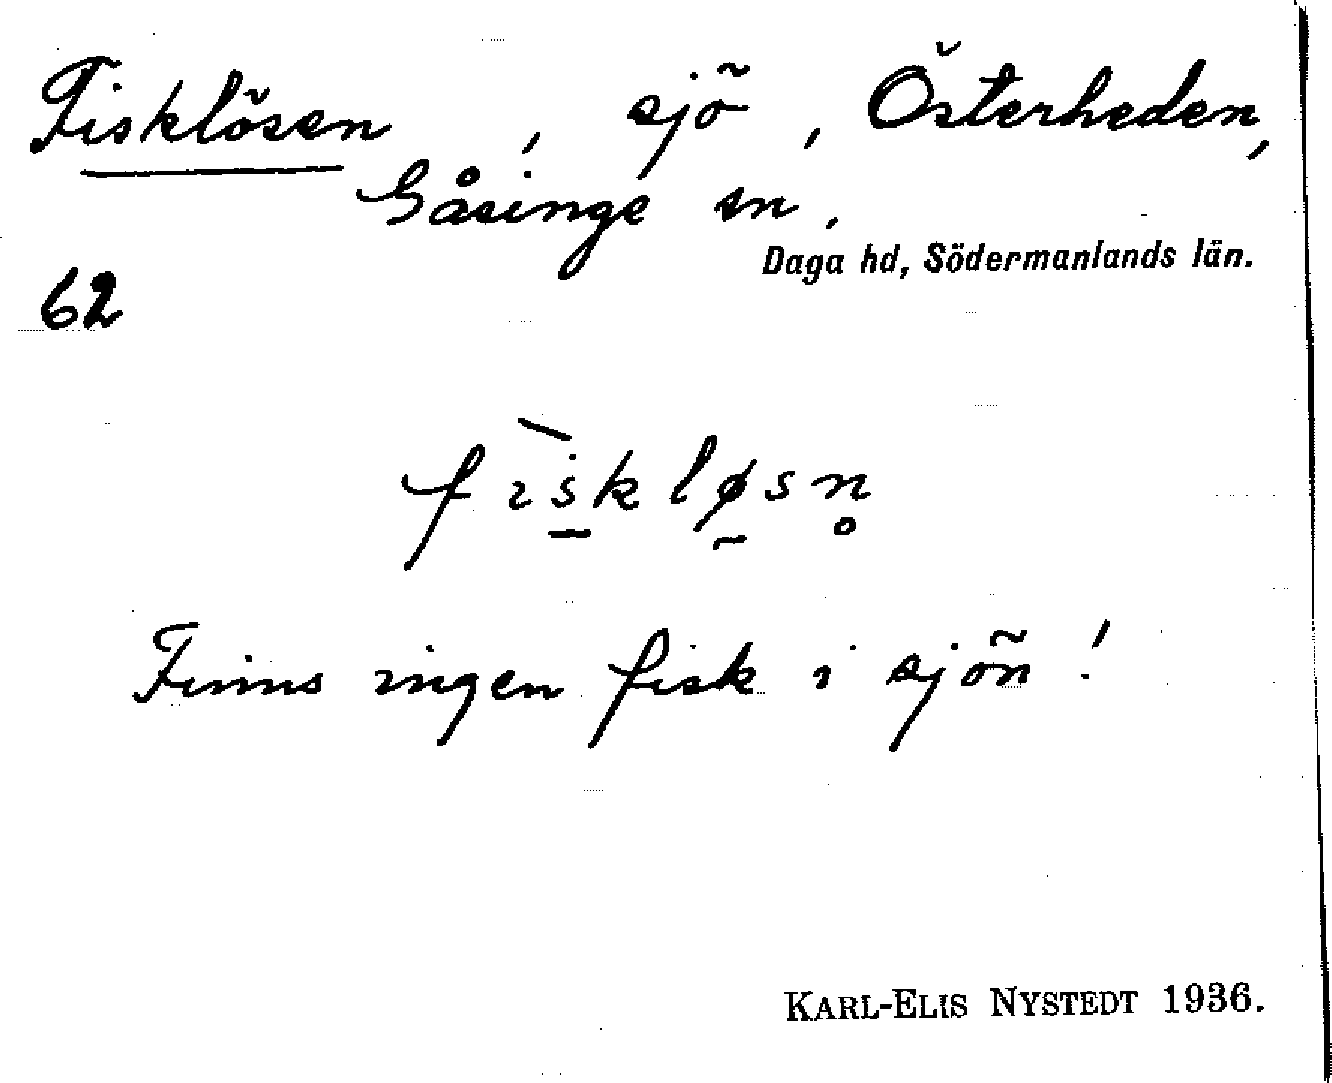 Fisklösen, sjö, Österheden,
Gåsinge sn,
Daga hd, Södermanlands län.
62
fı̀s̠klø̰sn̥
Finns ingen fisk i sjön!
KARL-ELIS NYSTEDT 1936.